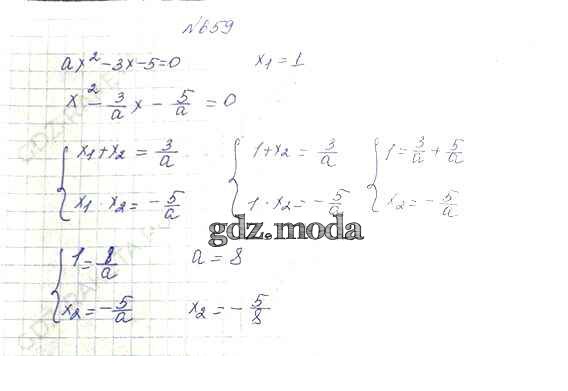 №659
ax² - 3x - 5 = 0 x₁ = 1
x² - 3/a x - 5/a = 0
{ x₁ + x₂ = 3/a { 1 + x₂ = 3/a { 1 = 3/a + 5/a
x₁ · x₂ = - 5/a 1 · x₂ = - 5/a x₂ = - 5/a
gdz.moda
{ 1 = 8/a a = 8
x₂ = - 5/a x₂ = - 5/8